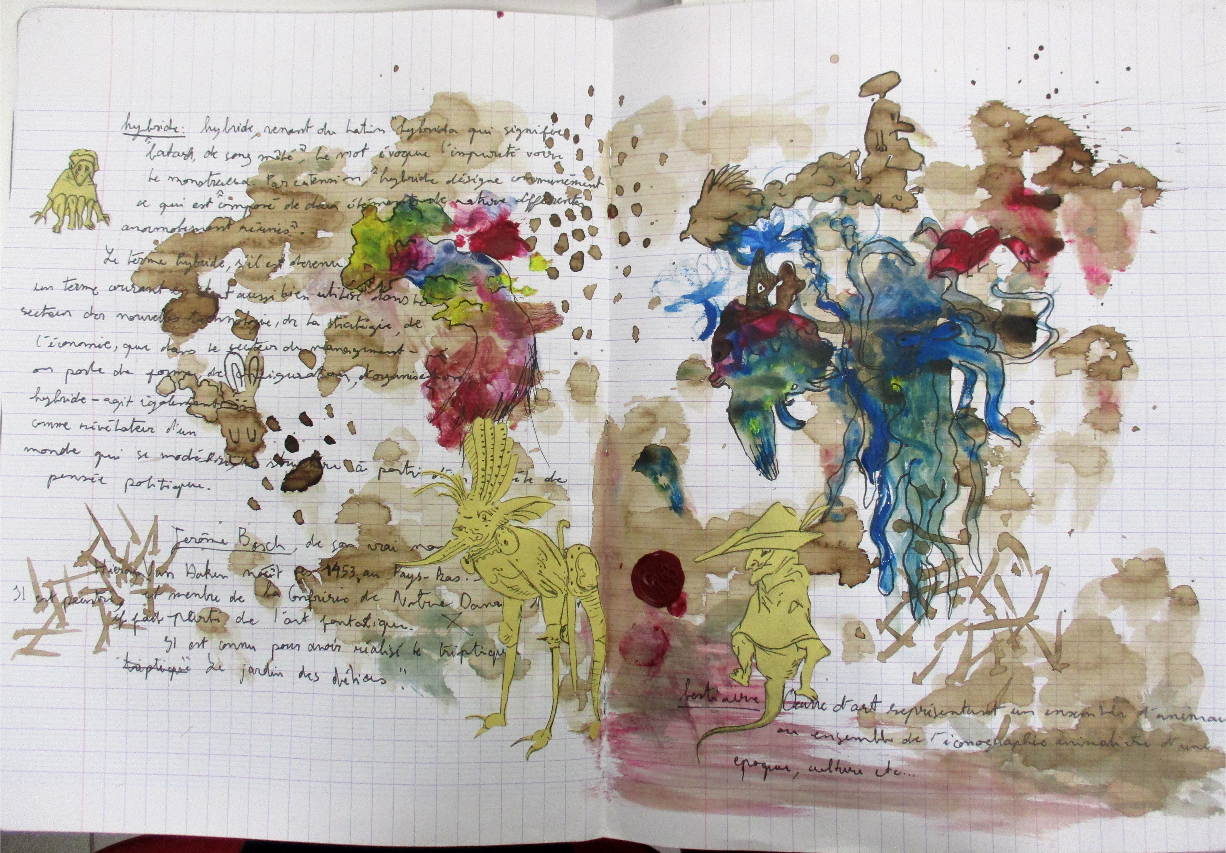 hybride : hybride, venant du Latin "hybrida qui signifie
batard, de sang mêlé". Le mot évoque l'impureté voire
Le monstrueux. Par extension, l'hybride désigne communément
ce qui est composé de deux éléments de nature différente
anormalement réunis".
Le terme hybride, s'il est devenu
un terme courant est aussi bien utilisé dans le
secteur des nouvelles technologie, de la stratégie, de
l'économie, que dans le secteur du management-
on parle de forme, de configuration, d'organisation
hybride - agit également
comme révélateur d'un
monde qui se à partir de
pensée politique.
Jerôme Bosch, de son vrai nom
Van Haken naît en 1453, au Pays-Bas.
Il est peintre, et membre de La Confrérie de Notre Dame
il fait partie de l'art fantastique.
Il est connu pour avoir réalisé le triptyque
triptique "Le jardin des délices".
bestiaire Œuvre d'art représentant un ensemble d'animaux
ou ensemble de l'iconographie animalière d'une
epoque, culture etc...